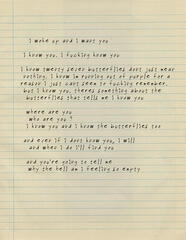 I woke up and I want you
I know you. I fucking know you
I know twenty seven butterflies don't just mean
nothing. I know I'm running out of purple for a
reason I just can't seem to fucking remember,
but I know you. there's something about the
butterflies that tells me I know you
where are you
who are you?
I know you and I know the butterflies too
and even if I don't know you, I will
and when I do I'll find you
and you're going to tell me
why the hell am I feeling so empty